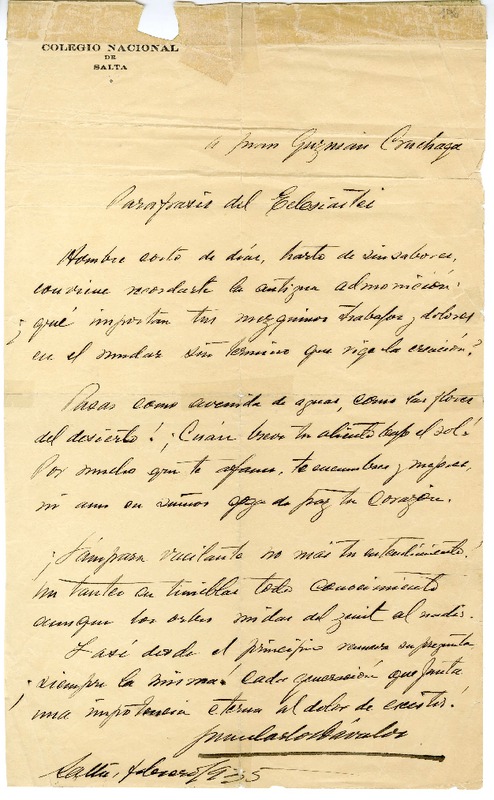 COLEGIO NACIONAL
DE
SALTA
A Juan Guzmán Cruchaga
Parafrasis del Eclesiastes
Hombre corto de días, harto de sinsabores,
conviene recordarte la antigua admonición:
¿qué importan tus mezquinos trabajos y dolores
en el mudar sin término que rige la creación?
Pasas como avenida de aguas, como las flores
del desierto! ¡Cuán breve tu aliento bajo el sol!
Por mucho que te afanes, te encumbres y mejores,
ni aun en sueños goza de paz tu corazón.
¡Lámpara vacilante no más tu entendimiento!
Un tanteo en tinieblas todo conocimiento
aunque los orbes midas del zenit al nadir.
Y así desde el principio renueva su pregunta
¡siempre la misma! cada generación que junta
una impotencia eterna al dolor de existir!
Juan Carlos Dávalos
Salta, febrero/935